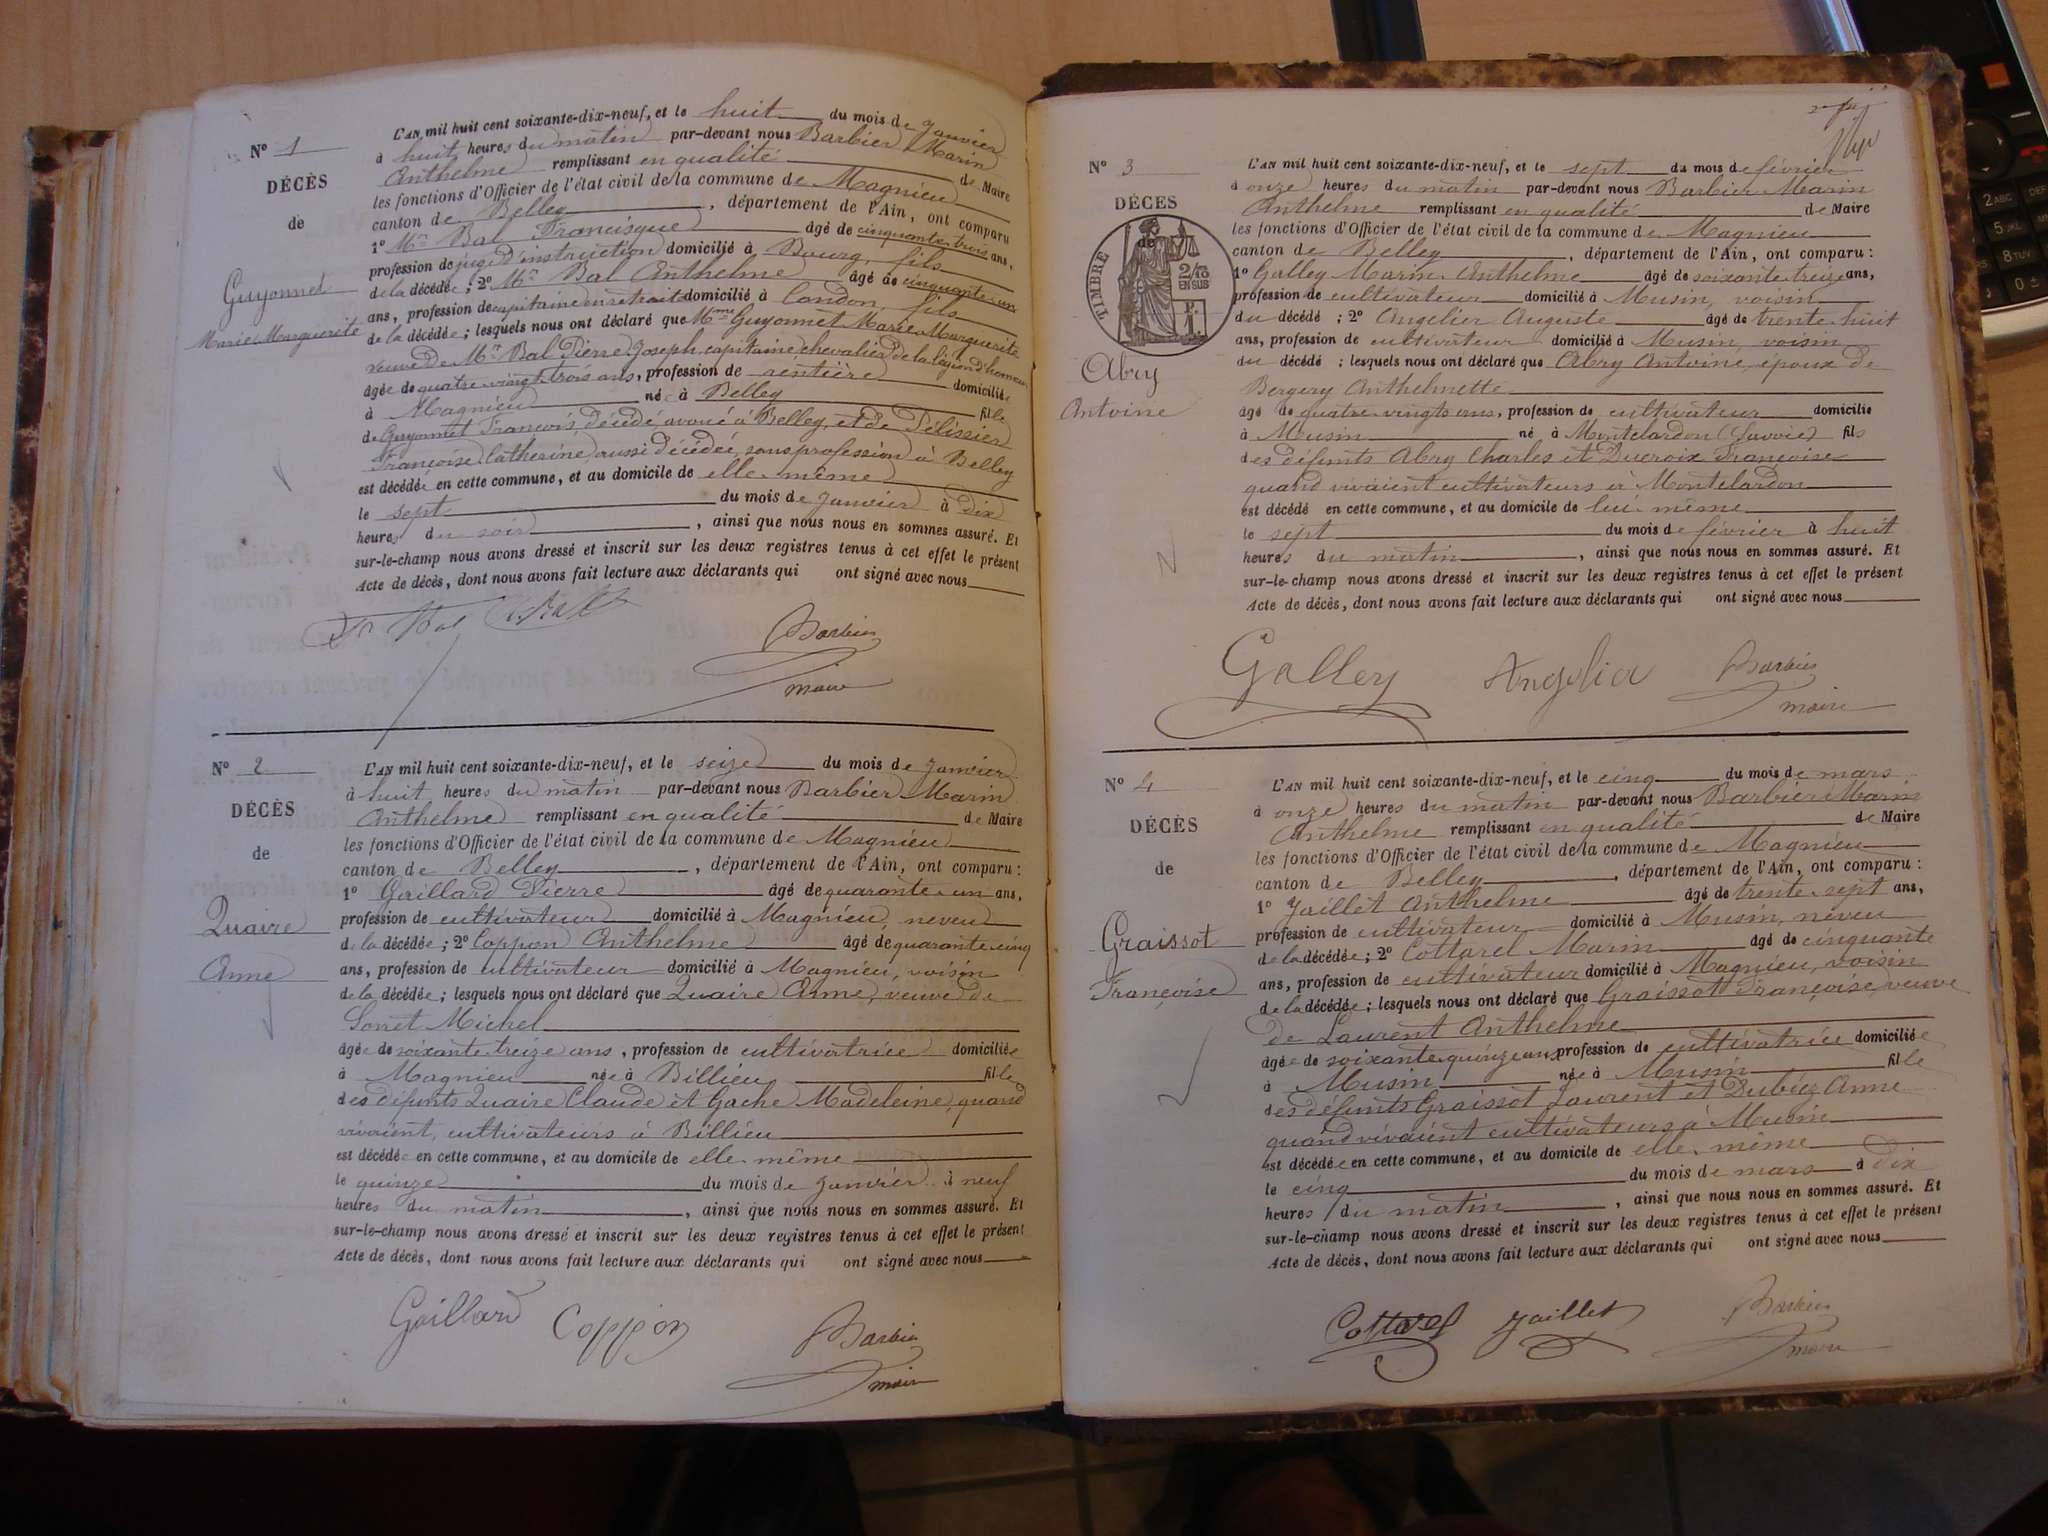 N° 1
DÉCÈS
de
Guyonnet
Marie Marguerite
L'AN mil huit cent soixante-dix-neuf, et le huit du mois de janvier
à huit heures du matin par-devant nous Barbier Marin
Anthelme remplissant en qualité de Maire
les fonctions d'Officier de l'état civil de la commune de Magnieu
canton de Belley, département de l'Ain, ont comparu
1° Mr Bal Francisque âgé de cinquante trois ans,
profession de juge d'instruction domicilié à Bourg, fils
de la décédée ; 2° Mr Bal Anthelme âgé de cinquante un
ans, profession de capitaine en retraite domicilié à Condon, fils
de la décédée ; lesquels nous ont déclaré que Mme Guyonnet Marie Marguerite
veuve de Mr Bal Pierre Joseph, capitaine, chevalier de la légion d'honneur
âgée de quatre vingt trois ans, profession de rentière domiciliée
à Magnieu née à Belley fille
de Guyonnet François, décédé, avoué à Belley, et de Pélissier
Françoise Catherine, aussi décédée, sans profession à Belley
est décédée en cette commune, et au domicile de elle-même
le sept du mois de janvier à dix
heures du soir, ainsi que nous nous en sommes assuré. Et
sur-le-champ nous avons dressé et inscrit sur les deux registres tenus à cet effet le présent
Acte de décès, dont nous avons fait lecture aux déclarants qui ont signé avec nous
Fr Bal A. Bal
Barbier
maire
N° 2
DÉCÈS
de
Quaire
Anne
L'AN mil huit cent soixante-dix-neuf, et le seize du mois de janvier
à huit heures du matin par-devant nous Barbier Marin
Anthelme remplissant en qualité de Maire
les fonctions d'Officier de l'état civil de la commune de Magnieu
canton de Belley, département de l'Ain, ont comparu :
1° Gaillard Pierre âgé de quarante un ans,
profession de cultivateur domicilié à Magnieu, neveu
de la décédée ; 2° Coppon Anthelme âgé de quarante cinq
ans, profession de cultivateur domicilié à Magnieu, voisin
de la décédée ; lesquels nous ont déclaré que Quaire Anne, veuve de
Sorret Michel
âgée de soixante treize ans, profession de cultivatrice domiciliée
à Magnieu née à Billieu fille
des défunts Quaire Claude et Gache Madeleine, quand
vivaient, cultivateurs à Billieu
est décédée en cette commune, et au domicile de elle-même
le quinze du mois de janvier à neuf
heures du matin, ainsi que nous nous en sommes assuré. Et
sur-le-champ nous avons dressé et inscrit sur les deux registres tenus à cet effet le présent
Acte de décès, dont nous avons fait lecture aux déclarants qui ont signé avec nous
Gaillard Coppon Barbier
maire
N° 3
DÉCES
de
TIMBRE
2/10
EN SUS
Abry
Antoine
L'AN mil huit cent soixante-dix-neuf, et le sept du mois de février
à onze heures du matin par-devant nous Barbier Marin
Anthelme remplissant en qualité de Maire
les fonctions d'Officier de l'état civil de la commune de Magnieu
canton de Belley, département de l'Ain, ont comparu :
1° Galley Marin Anthelme âgé de soixante treize ans,
profession de cultivateur domicilié à Musin, voisin
du décédé ; 2° Angelier Auguste âgé de trente huit
ans, profession de cultivateur domicilié à Musin, voisin
du décédé ; lesquels nous ont déclaré que Abry Antoine, époux de
Bergery Anthelmette
âgé de quatre vingts ans, profession de cultivateur domicilié
à Musin né à Montelardon (Savoie) fils
des défunts Abry Charles et Ducroix Françoise
quand vivaient cultivateurs à Montelardon
est décédé en cette commune, et au domicile de lui-même
le sept du mois de février à huit
heures du matin, ainsi que nous nous en sommes assuré. Et
sur-le-champ nous avons dressé et inscrit sur les deux registres tenus à cet effet le présent
Acte de décès, dont nous avons fait lecture aux déclarants qui ont signé avec nous
Galley Angelier Barbier
maire
N° 4
DÉCÈS
de
Graissot
Françoise
L'AN mil huit cent soixante-dix-neuf, et le cinq du mois de mars
à onze heures du matin par-devant nous Barbier Marin
Anthelme remplissant en qualité de Maire
les fonctions d'Officier de l'état civil de la commune de Magnieu
canton de Belley, département de l'Ain, ont comparu :
1° Jaillet Anthelme âgé de trente-sept ans,
profession de cultivateur domicilié à Musin, neveu
de la décédée ; 2° Cottarel Marin âgé de cinquante
ans, profession de cultivateur domicilié à Magnieu, voisin
de la décédée ; lesquels nous ont déclaré que Graissot Françoise, veuve
de Laurent Anthelme
âgée de soixante quinze ans profession de cultivatrice domiciliée
à Musin née à Musin fille
des défunts Graissot Laurent et Dubiez Anne
quand vivaient cultivateurs à Musin
est décédée en cette commune, et au domicile de elle-même
le cinq du mois de mars à dix
heures du matin, ainsi que nous nous en sommes assuré. Et
sur-le-champ nous avons dressé et inscrit sur les deux registres tenus à cet effet le présent
Acte de décès, dont nous avons fait lecture aux déclarants qui ont signé avec nous
Cottarel Jaillet Barbier
maire